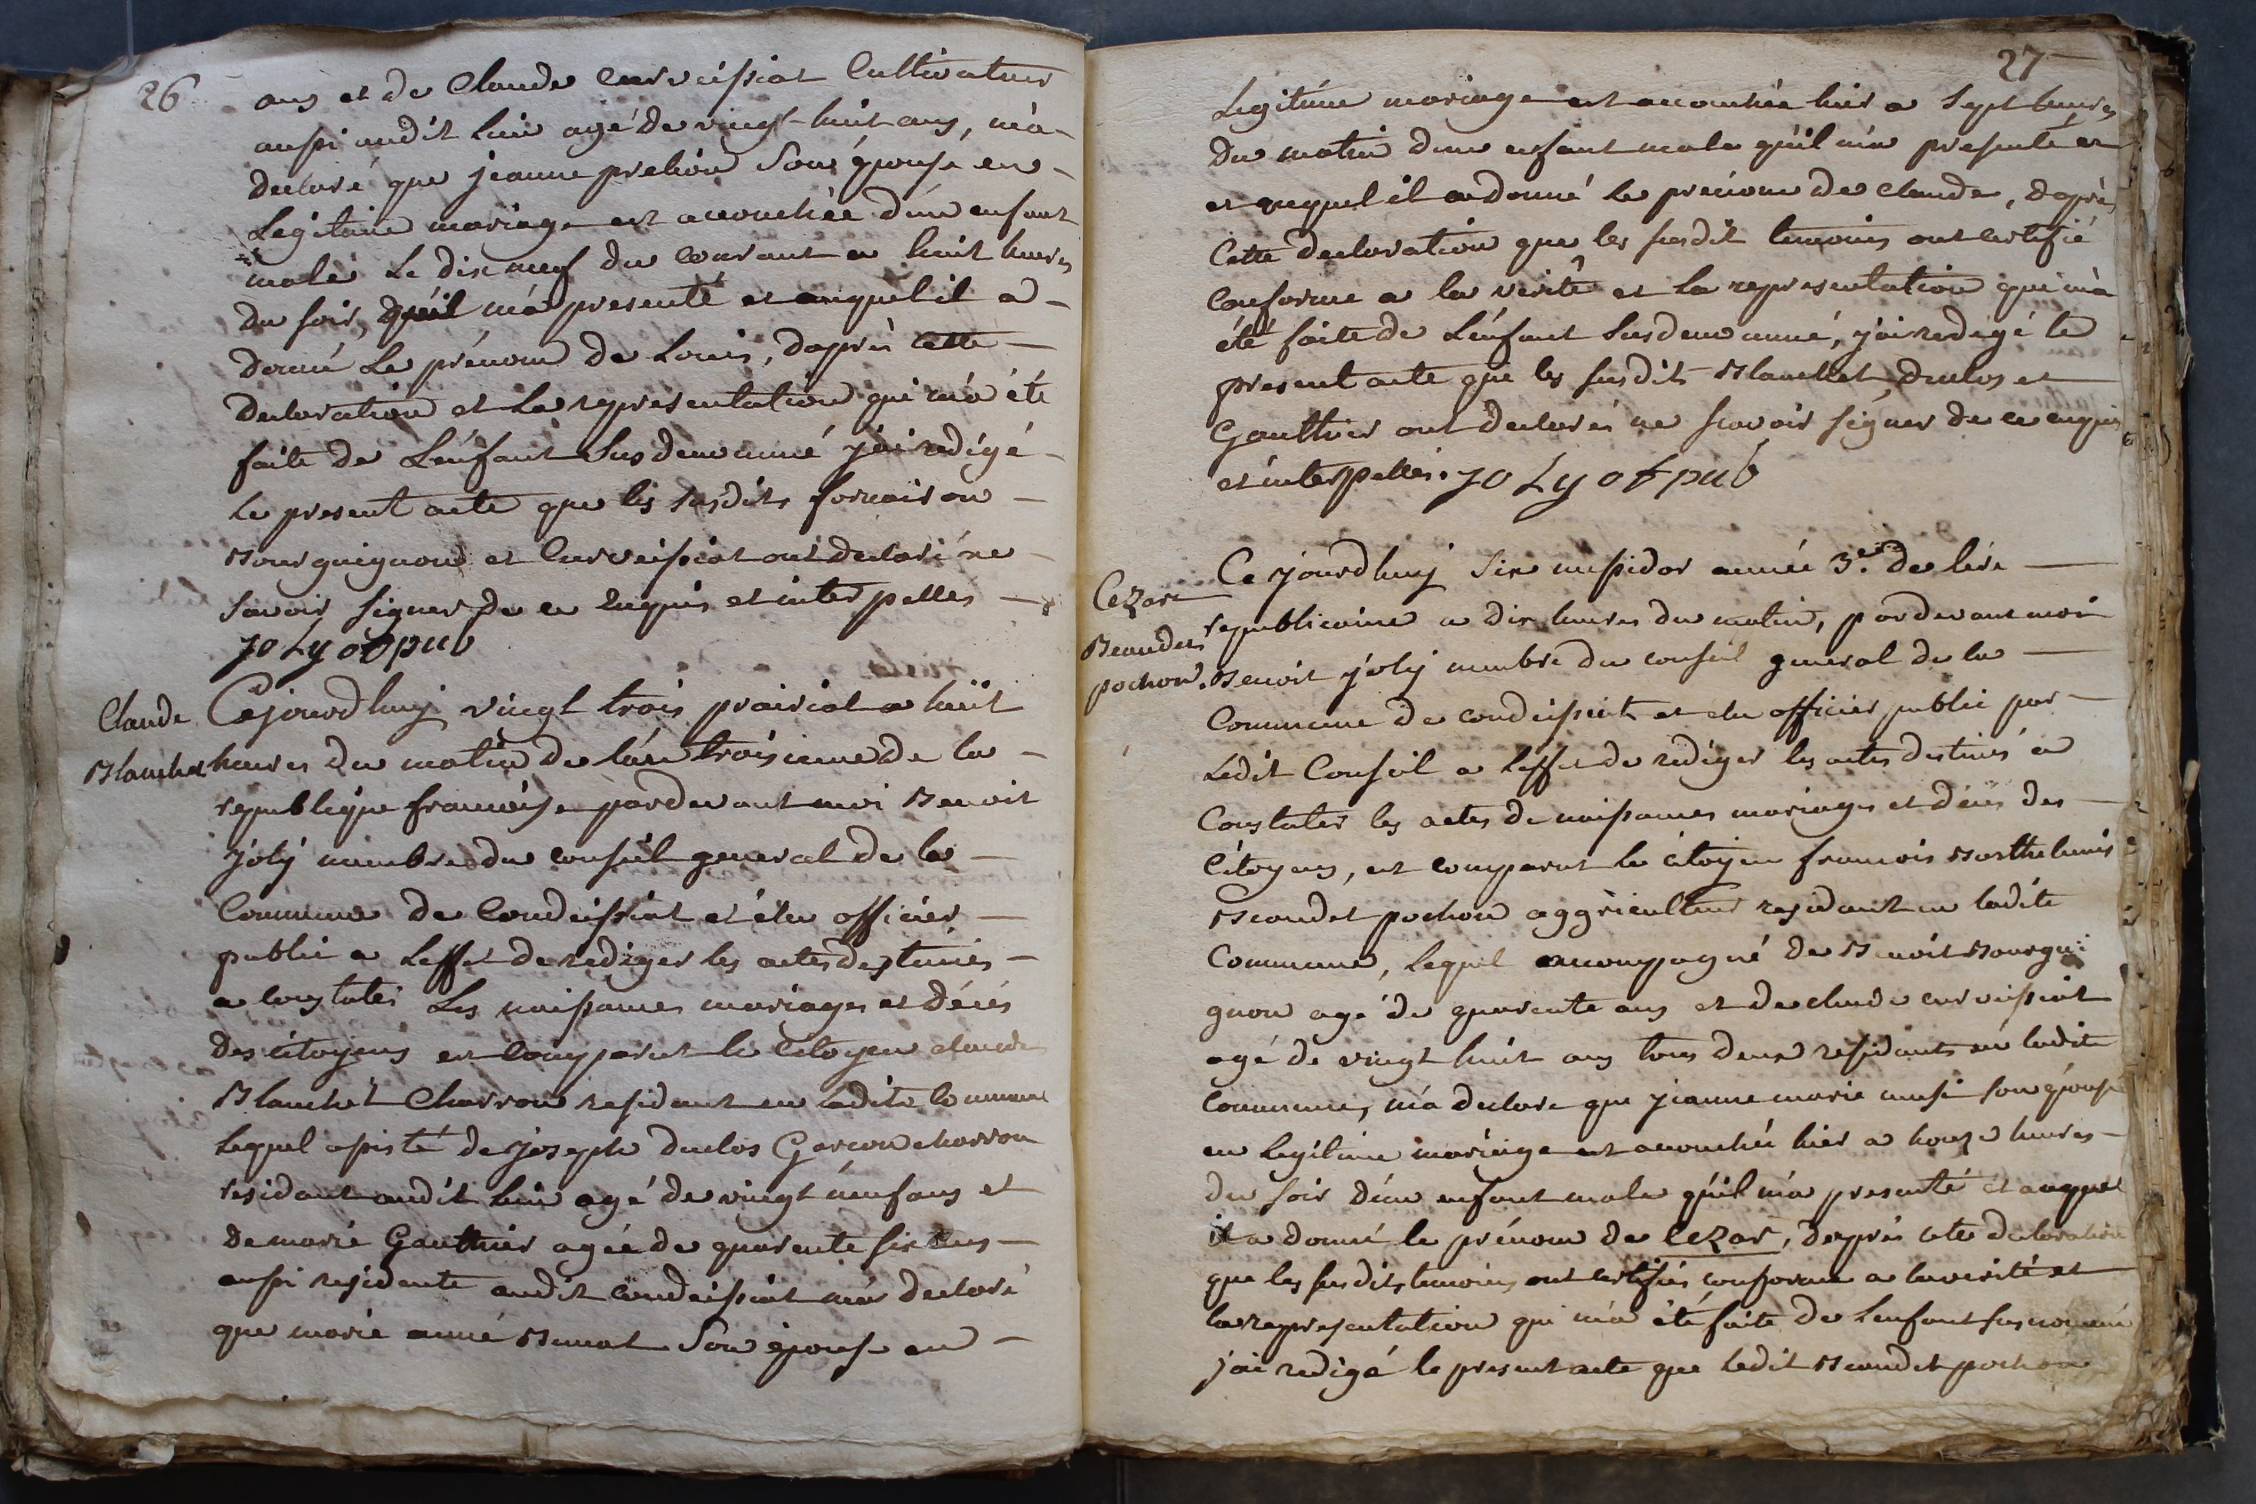 26
ans et de Claude Curveissiat Cultivateur
aussi audit lieu agé de vingt-huit ans, m'a
declaré que jeanne prelion Son épouse en
Legitime mariage est accouchée d'un enfant
male Le dix neuf du courant a huit heures
du soir, qu'il m'a presenté et auquel il a
donné Le prénom de Louis, dapres cette
declaration et La representation qui m'a été
faite de L'enfant Susdenommé j'ai redigé
Le present acte que les susdits
Bourguignon et Curveissiat ont declaré ne
Savoir signer de ce enquis et interpellés
Joly of pub
Claude
Blanchet
Cejourdhuy vingt trois prairial a huit
heures du matin de l'an troisieme de la
republique francoise pardevant moi Benoit
Joly membre du conseil general de la
Commune de Condeissiat et élu officier
public a Leffet de rediger les actes destinés
a constater Les naissances mariages et décés
des citoyens est comparut le Citoyen claude
Blanchet Charron residant en ladite commune
Lequel assisté de Joseph duclos Garcon charron
residant audit lieu agé de vingt neuf ans et
de marie Gauthier agée de quarente six ans
aussi residente audit condeissiat m'a declaré
que marie anne Son épouse en
27
Legitime mariage est accouchée hier a Sept heures
du matin d'un enfant male qu'il m'a presenté et
et auquel il a donné Le prénom de Claude, dapres
Cette declaration que les susdit temoins ont certifié
Conforme a la verité et La representation qui m'a
été faite de L'enfant Susdenommé, j'ai redigé le
present acte que les susdits Blanchet, duclos et
Gauthier ont declarés ne scavoir signer de ce enquis
et interpellés. Joly of pub
Cezar
Beaudet
pochon.
Ce jourdhuy Six messidor année 3.e de l'ére
republicaine a dix heures du matin, pardevant moi
Benoit joly membre du conseil general de la
Commune de condeissiat et élu officier public par
Ledit Conseil a Leffet de rediger les actes destinés a
Constater les actes de naissances mariages et décés des
Citoyens, est comparut le citoyen francois Barthelemis
Beaudet pochon aggriculteur residant en ladite
Commune, Lequel accompagné de Benoit Bourgui
gnon agé de quarente ans et de claude curveissiat
agé de vingt huit ans tous deux residants en ladit
Commune, m'a declare que jeanne marie son épouse
en Legitime mariage est accouchée hier a honze heures
du soir d'un enfant male qu'il m'a presenté et auquel
il a donné le prénom de Cezar, dapres cette declaration
que les susdits temoins ont certifiés conforme a la verité et
la representation qui m'a été faite de Lenfant susnommé
j'ai redigé le present acte que Ledit Beaudet pochon